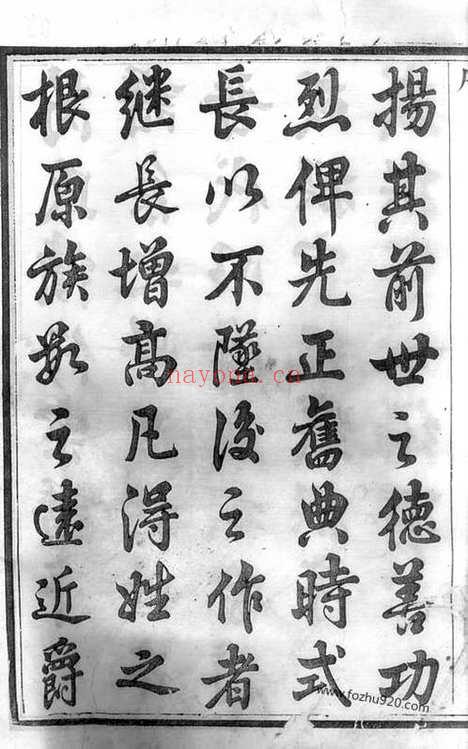 揚其前世之德善功
烈俾先正舊典時式
長以不墜後之作者
继長增髙凡淂姓之
根原族氏之遠近爵
nayona.ca
www.fozhu920.com